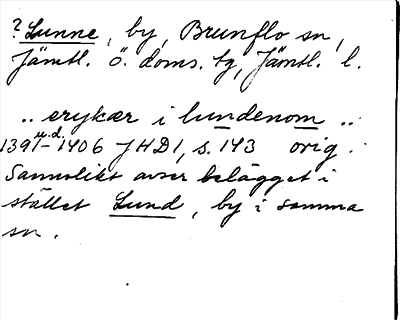 ? Lunne, by, Brunflo sn,
Jämtl. ö. doms. tg, Jämtl. l.
.. erykær i lundenom ..
u.d.
1391–1406 JHD1, s. 143 orig.
Sannolikt avser belägget i
stället Lund, by i samma
sn.